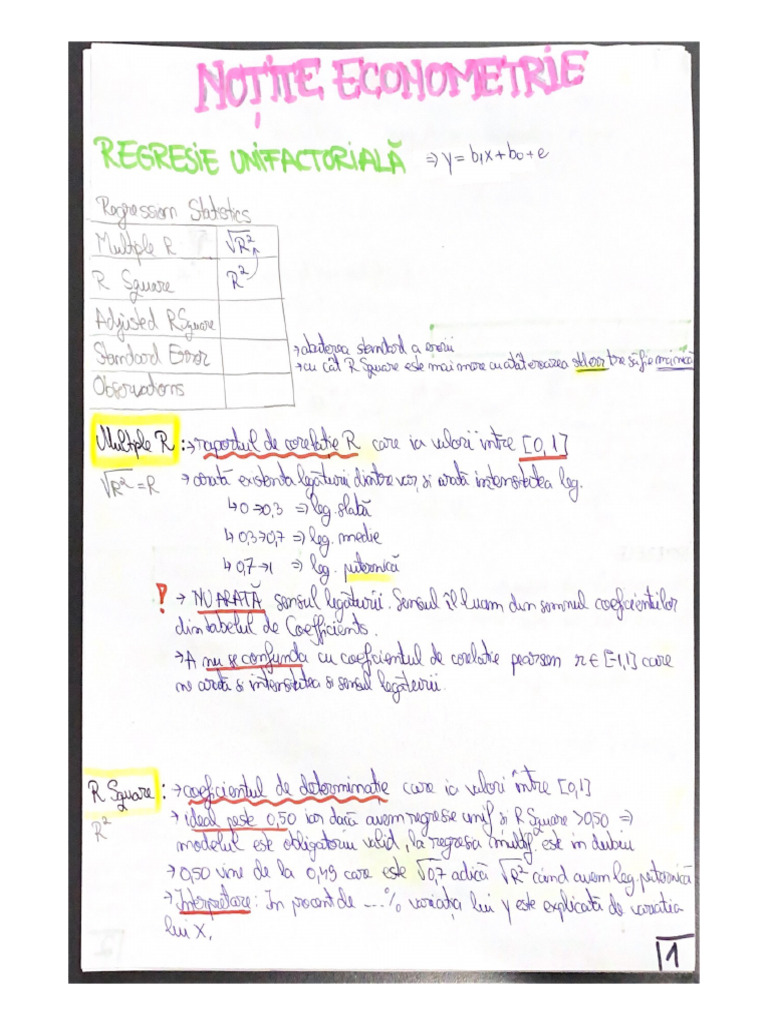 NOȚITE ECONOMETRIE
REGRESIE UNIFACTORIALĂ => y = b₁x + b₀ + e
Regression Statistics
Multiple R √R²
R Square R²
Adjusted R Square
Standard Error → abaterea standard a erorii
→ cu cât R Square este mai mare cu atât eroarea std err tre să fie mai mică
Observations
Multiple R : → raportul de corelatie R care ia valori intre [0,1]
√R² = R → arată existenta legăturii dintre var, si arată intensitatea leg.
↳ 0 → 0,3 => leg. slabă
↳ 0,3 → 0,7 => leg. medie
↳ 0,7 → 1 => leg. puternică
! → NU ARATĂ sensul legăturii. Sensul îl luam din semnul coeficientilor
din tabelul de Coefficients.
→ A nu se confunda cu coeficientul de corelatie pearson r ∈ [-1,1] care
ne arată si intensitatea si sensul legăturii.
R Square : → coeficientul de determinatie care ia valori între [0,1]
R² → ideal peste 0,50 iar dacă avem regresie unif si R Square > 0,50 =>
modelul este obligatoriu valid, la regresia multif. este in dubiu
→ 0,50 vine de la 0,49 care este √0,7 adică √R² când avem leg. puternică
→ Interpretare: In procent de ....% variația lui y este explicată de variatia
lui X.
1